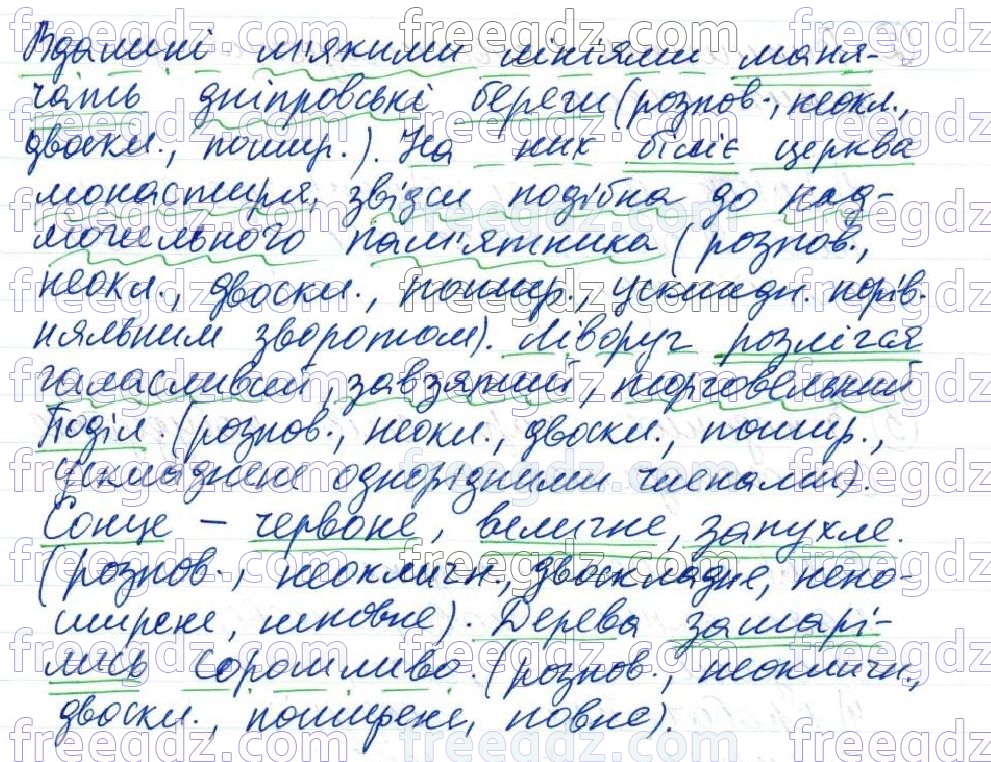 Вдалині м'якими лініями мая-
чать дніпровські береги (розпов., неокл.,
двоскл., пошир.). На них біліє церква
монастиря, звідси подібна до над-
могильного пам'ятника (розпов.,
неокл., двоскл., пошир., ускладн. порів-
няльним зворотом). Ліворуч розлігся
галасливий, завзятий, торговельний
Поділ. (розпов., неокл., двоскл., пошир.,
ускладнене однорідними членами).
Сонце – червоне, величне, запухле.
(розпов., неокличн., двоскладне, непо-
ширене, повне). Дерева зашарі-
лись соромливо. (розпов., неокличн.,
двоскл., поширене, повне).
freegdz.com